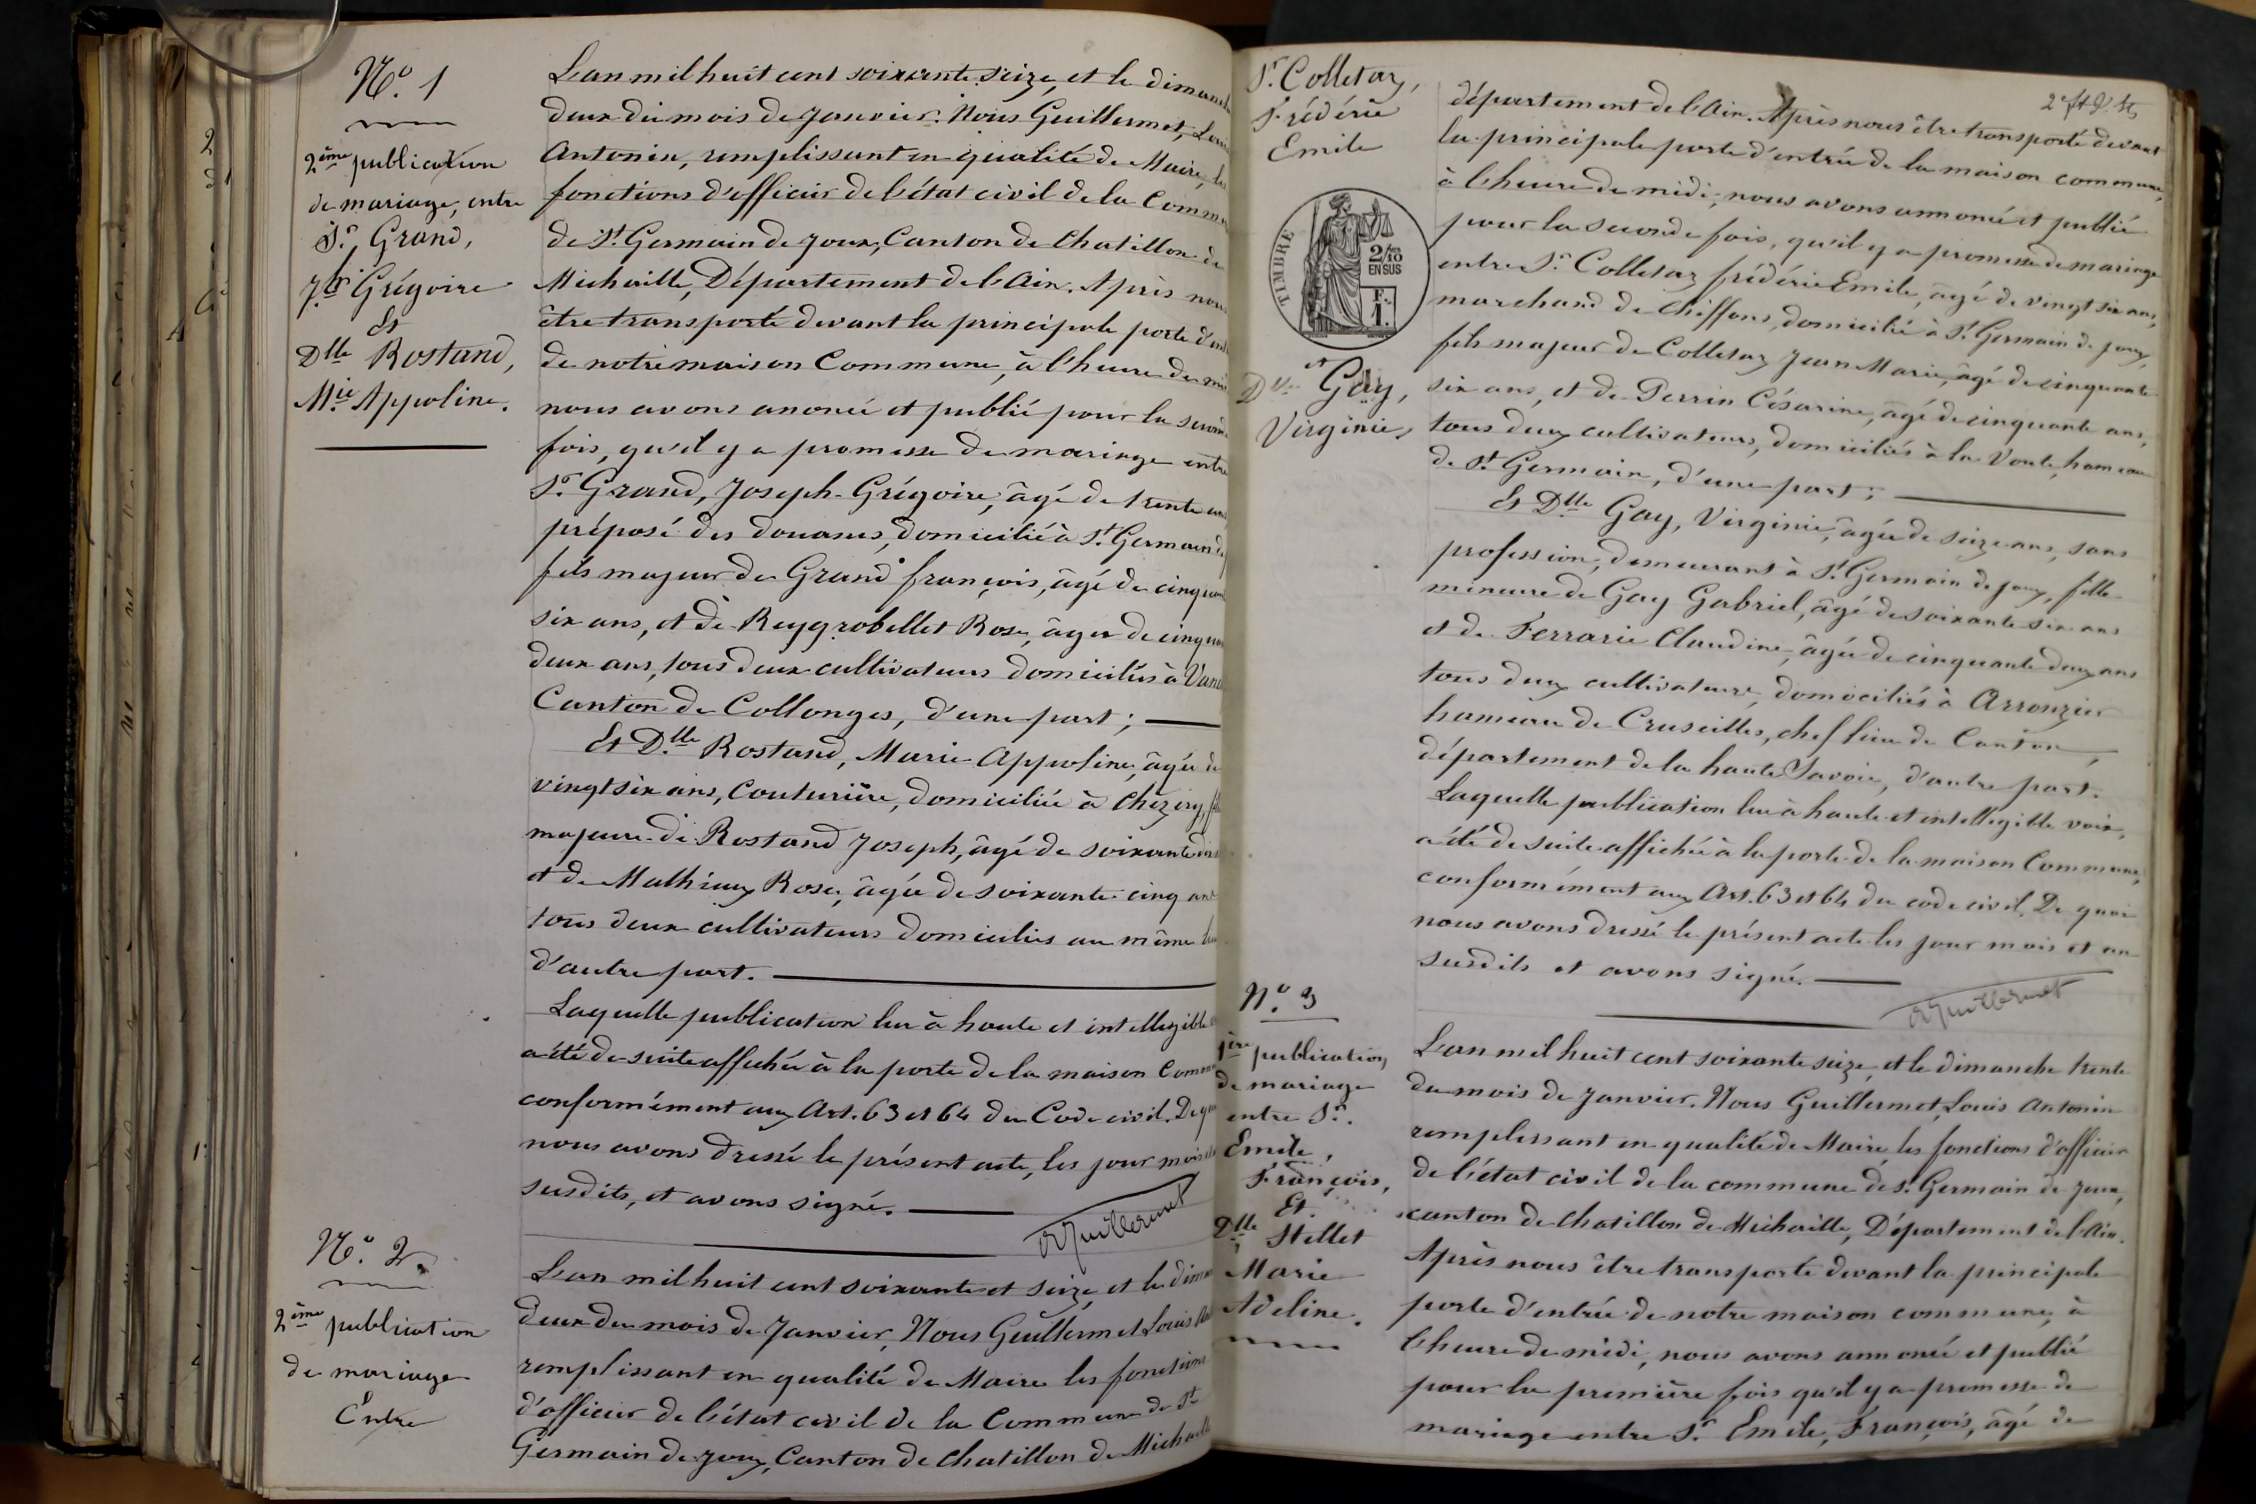 N.º 1
2ème publication
de mariage, entre
Sr. Grand,
Jh. Grégoire
Et
Dlle Rostand,
Mie. Appoline.
L'an mil huit cent soixante seize, et le dimanche
deux du mois de Janvier. Nous Guillermet, Louis
Antonin, remplissant en qualité de Maire, les
fonctions d'officier de l'état civil de la Commune
de St. Germain de Joux, Canton de Chatillon de
Michaille, Département de l'Ain. Après nous
être transporté devant la principale porte d'entrée
de notre maison Commune, à l'heure de midi
nous avons anoncé et publié pour la seconde
fois, qu'il y a promesse de mariage entre
Sr. Grand, Joseph-Grégoire, âgé de trente ans
préposé des douanes, domicilié à St. Germain de
fils majeur de Grand françois, âgé de cinquante
six ans, et de Reygrobellet Rose, âgée de cinquante
deux ans, tous deux cultivateurs domiciliés à
Canton de Collonges, d'une part;
Et D.lle Rostand, Marie Appoline, âgée de
vingt six ans, Couturière, domiciliée à Chézery, fille
majeure de Rostand Joseph, âgé de soixante
et de Mathieux Rose, âgée de soixante cinq ans
tous deux cultivateurs domiciliés au même lieu
d'autre part.
Laquelle publication lue à haute et intelligible
a été de suite affichée à la porte de la maison Commune
conformément aux Art. 63 et 64 du Code civil. De quoi
nous avons dressé le présent acte, les jour mois et an
susdits, et avons signé.
Guillermet
N.º 2
2ème publication
de mariage
Entre
L'an mil huit cent soixante et seize, et le dimanche
deux du mois de Janvier, Nous Guillermet Louis
remplissant en qualité de Maire les fonctions
d'officier de l'état civil de la Commune de St.
Germain de Joux, Canton de Chatillon de Michaille
Sr. Colletaz,
Frédéric
Emile
TIMBRE
2/10
EN SUS
Gay,
Virginie,
département de l'Ain. Après nous être transporté devant
la principale porte d'entrée de la maison commune,
à l'heure de midi, nous avons annoncé et publié
pour la seconde fois, qu'il y a promesse de mariage
entre Sr. Colletaz frédéric Emile, âgé de vingt six ans,
marchand de chiffons, domicilié à St. Germain de Joux,
fils majeur de Colletaz Jean Marie, âgé de cinquante
six ans, et de Perrin Césarine, âgé de cinquante ans,
tous deux cultivateurs, domiciliés à la Voute, hameau
de St. Germain, d'une part;
Et D.lle Gay, Virginie, âgée de seize ans, sans
profession, demeurant à St. Germain de Joux, fille
mineure de Gay Gabriel, âgé de soixante six ans
et de Ferrarie Claudine, âgée de cinquante deux ans
tous deux cultivateurs, domiciliés à Arronzier
hameau de Cruseilles, chef lieu de Canton,
département de la haute Savoie, d'autre part.
Laquelle publication lue à haute et intelligible voix,
a été de suite affichée à la porte de la maison Commune,
conformément aux Art. 63 et 64 du code civil. De quoi
nous avons dressé le présent acte les jour mois et an
susdits et avons signé.
Guillermet
N.º 3
1ère publication
de mariage
entre Sr.
Emile,
François,
Et.
Dlle
Stellet
Marie
Adeline.
L'an mil huit cent soixante seize, et le dimanche trente
du mois de Janvier. Nous Guillermet, Louis Antonin
remplissant en qualité de Maire, les fonctions d'officier
de l'état civil de la commune de St. Germain de Joux,
canton de Chatillon de Michaille, Département de l'Ain.
Après nous être transporté devant la principale
porte d'entrée de notre maison commune, à
l'heure de midi, nous avons annoncé et publié
pour la première fois qu'il y a promesse de
mariage entre Sr. Emile, François, âgé de